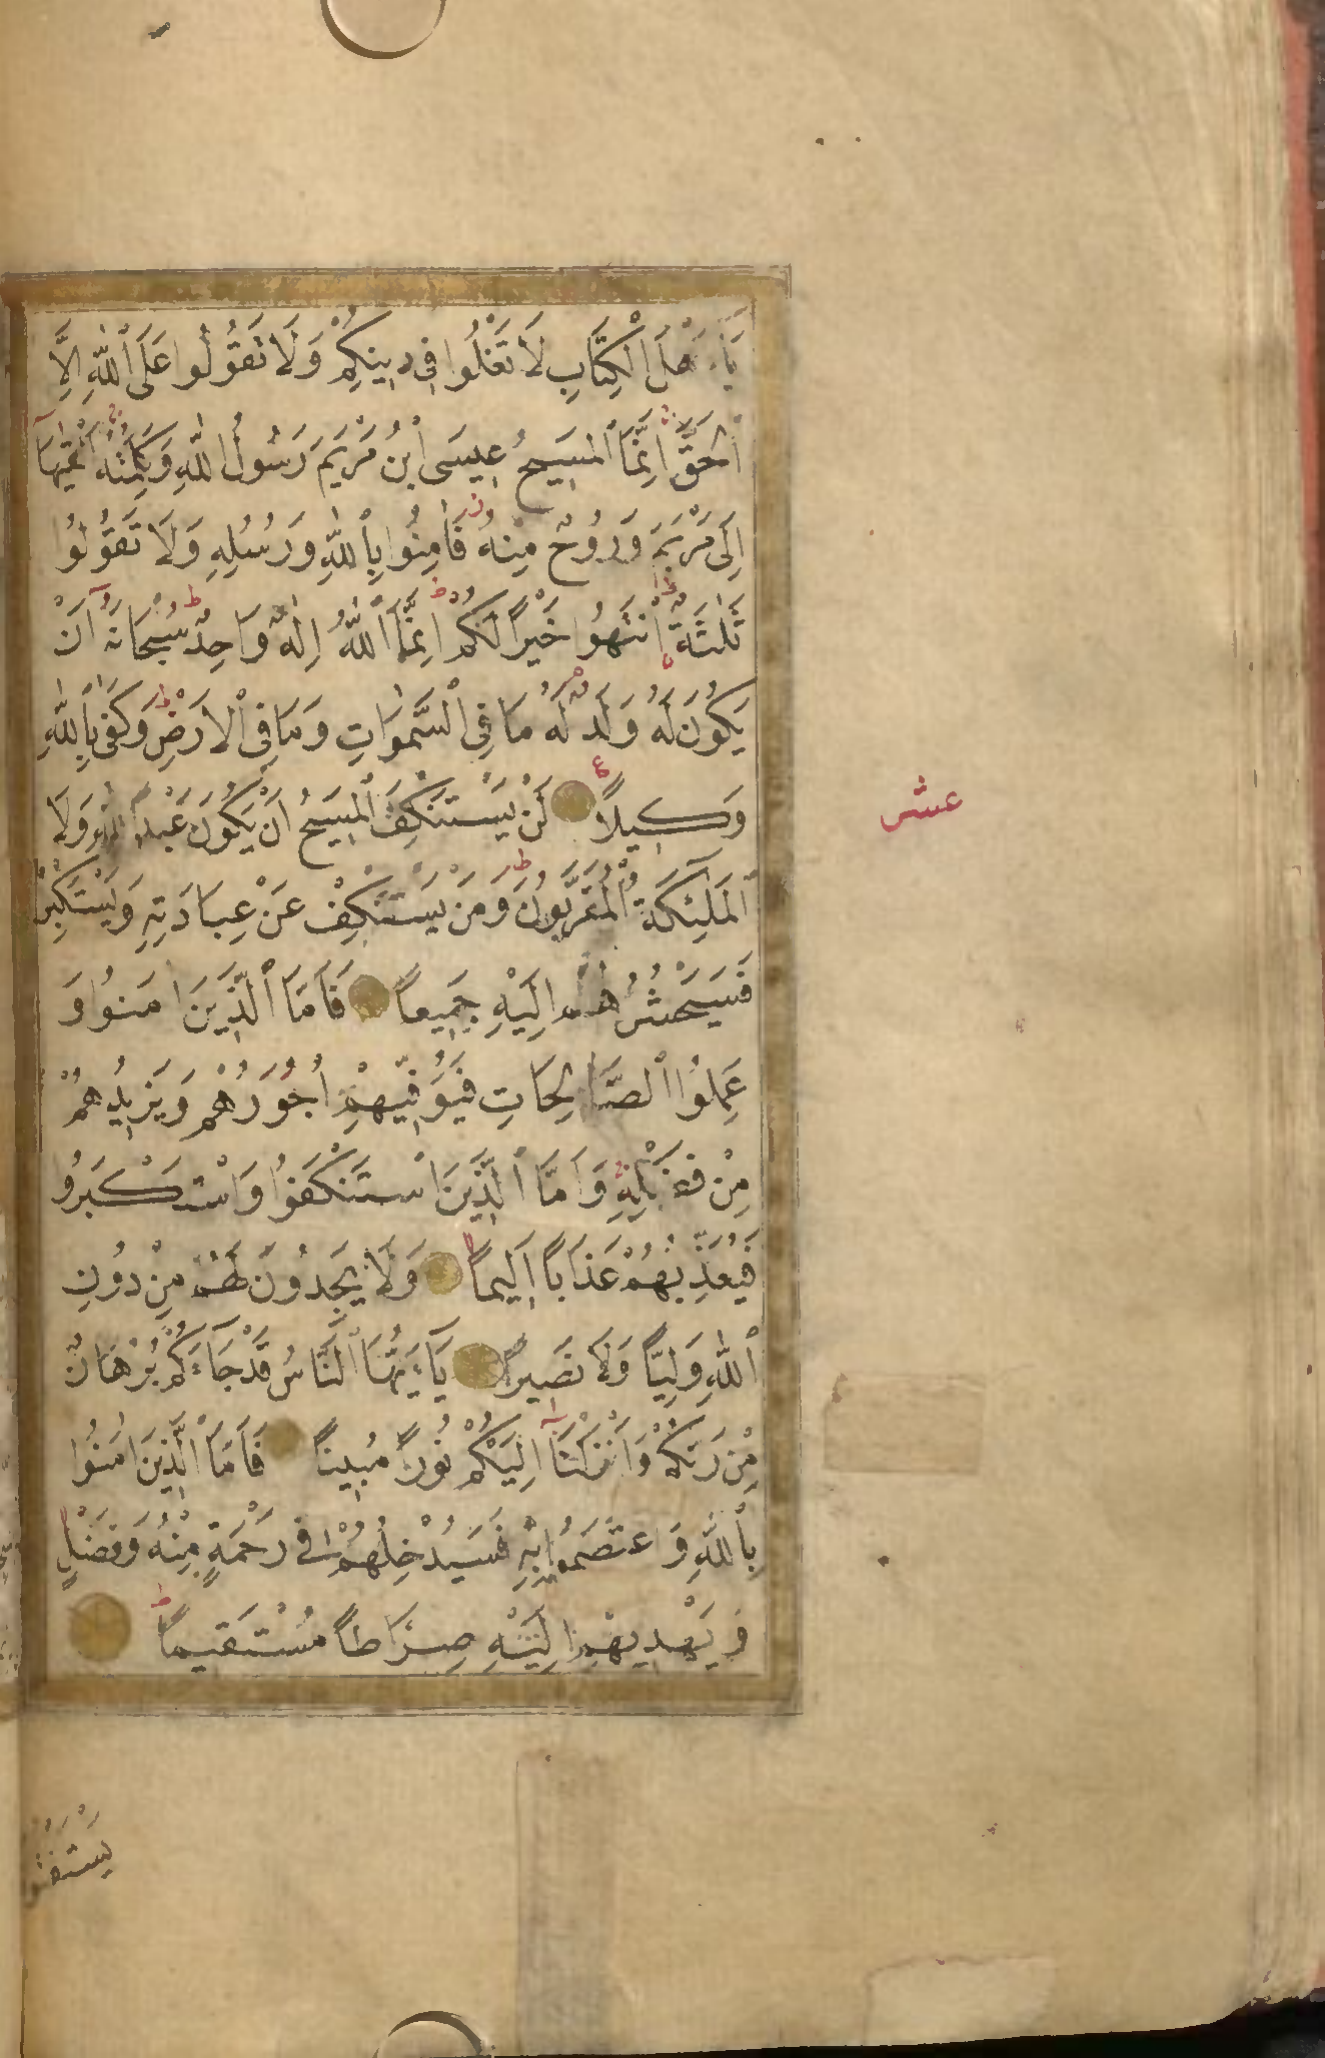 يَٰٓأَهْلَ ٱلْكِتَابِ لَا تَغْلُوا فِى دِينِكُمْ وَلَا تَقُولُوا عَلَى ٱللَّهِ إِلَّا
ٱلْحَقَّ إِنَّمَا ٱلْمَسِيحُ عِيسَى ٱبْنُ مَرْيَمَ رَسُولُ ٱللَّهِ وَكَلِمَتُهُ أَلْقَيهَا
إِلَى مَرْيَمَ وَرُوحٌ مِنْهُ فَآمِنُوا بِٱللَّهِ وَرُسُلِهِ وَلَا تَقُولُوا
ثَلٰثَةٌ ٱنْتَهُوا خَيْرًا لَكُمْ إِنَّمَا ٱللَّهُ إِلٰهٌ وَاحِدٌ سُبْحَانَهُ أَنْ
يَكُونَ لَهُ وَلَدٌ لَهُ مَا فِى ٱلسَّمٰوَاتِ وَمَا فِى ٱلْأَرْضِ وَكَفَى بِٱللَّهِ
وَكِيلًا لَنْ يَسْتَنْكِفَ ٱلْمَسِيحُ أَنْ يَكُونَ عَبْدًا لِلَّهِ وَلَا
ٱلْمَلٰئِكَةُ ٱلْمُقَرَّبُونَ وَمَنْ يَسْتَنْكِفْ عَنْ عِبَادَتِهِ وَيَسْتَكْبِرْ
فَسَيَحْشُرُهُمْ إِلَيْهِ جَمِيعًا فَأَمَّا ٱلَّذِينَ آمَنُوا وَ
عَمِلُوا ٱلصَّالِحَاتِ فَيُوَفِّيهِمْ أُجُورَهُمْ وَيَزِيدُهُمْ
مِنْ فَضْلِهِ وَأَمَّا ٱلَّذِينَ ٱسْتَنْكَفُوا وَٱسْتَكْبَرُو
فَيُعَذِّبُهُمْ عَذَابًا أَلِيمًا وَلَا يَجِدُونَ لَهُمْ مِنْ دُونِ
ٱللَّهِ وَلِيًّا وَلَا نَصِيرًا يَٰٓأَيُّهَا ٱلنَّاسُ قَدْ جَاءَكُمْ بُرْهَانٌ
مِنْ رَبِّكُمْ وَأَنْزَلْنَا إِلَيْكُمْ نُورًا مُبِينًا فَأَمَّا ٱلَّذِينَ آمَنُوا
بِٱللَّهِ وَٱعْتَصَمُوا بِهِ فَسَيُدْخِلُهُمْ فِى رَحْمَةٍ مِنْهُ وَفَضْلٍ
وَيَهْدِيهِمْ إِلَيْهِ صِرَاطًا مُسْتَقِيمًا
عشر